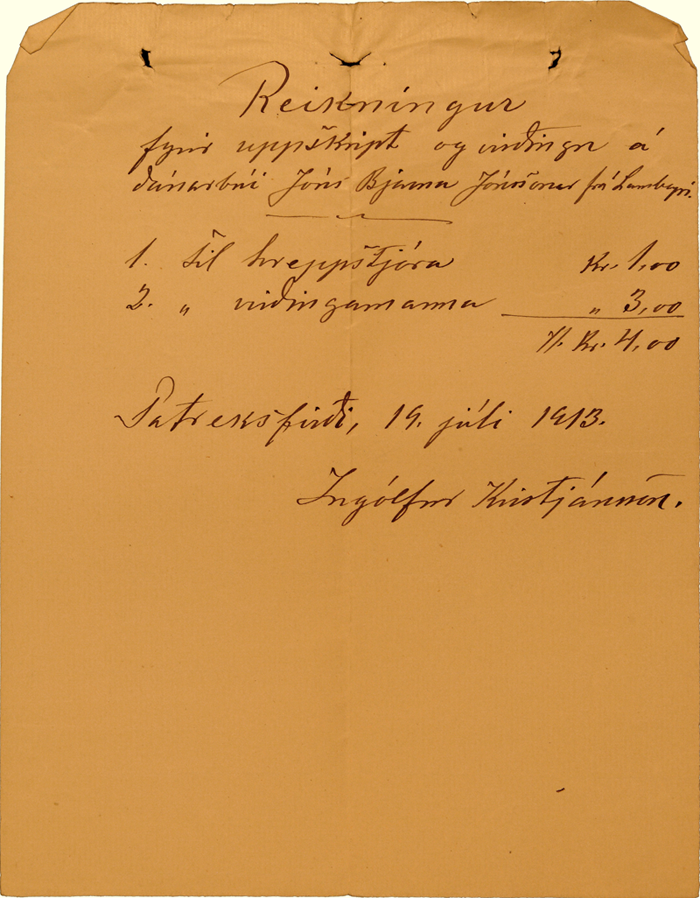 Reikningur
fyrir uppskript og virðingu á
dánarbúi Jóns Bjarna Jónssonar frá Lambeyri.
1. Til hreppstjóra Kr. 1,00
2. „ virðingamanna „ 3,00
Kr. 4,00
Patreksfirði, 19. júlí 1913.
Ingólfur Kristjánsson.